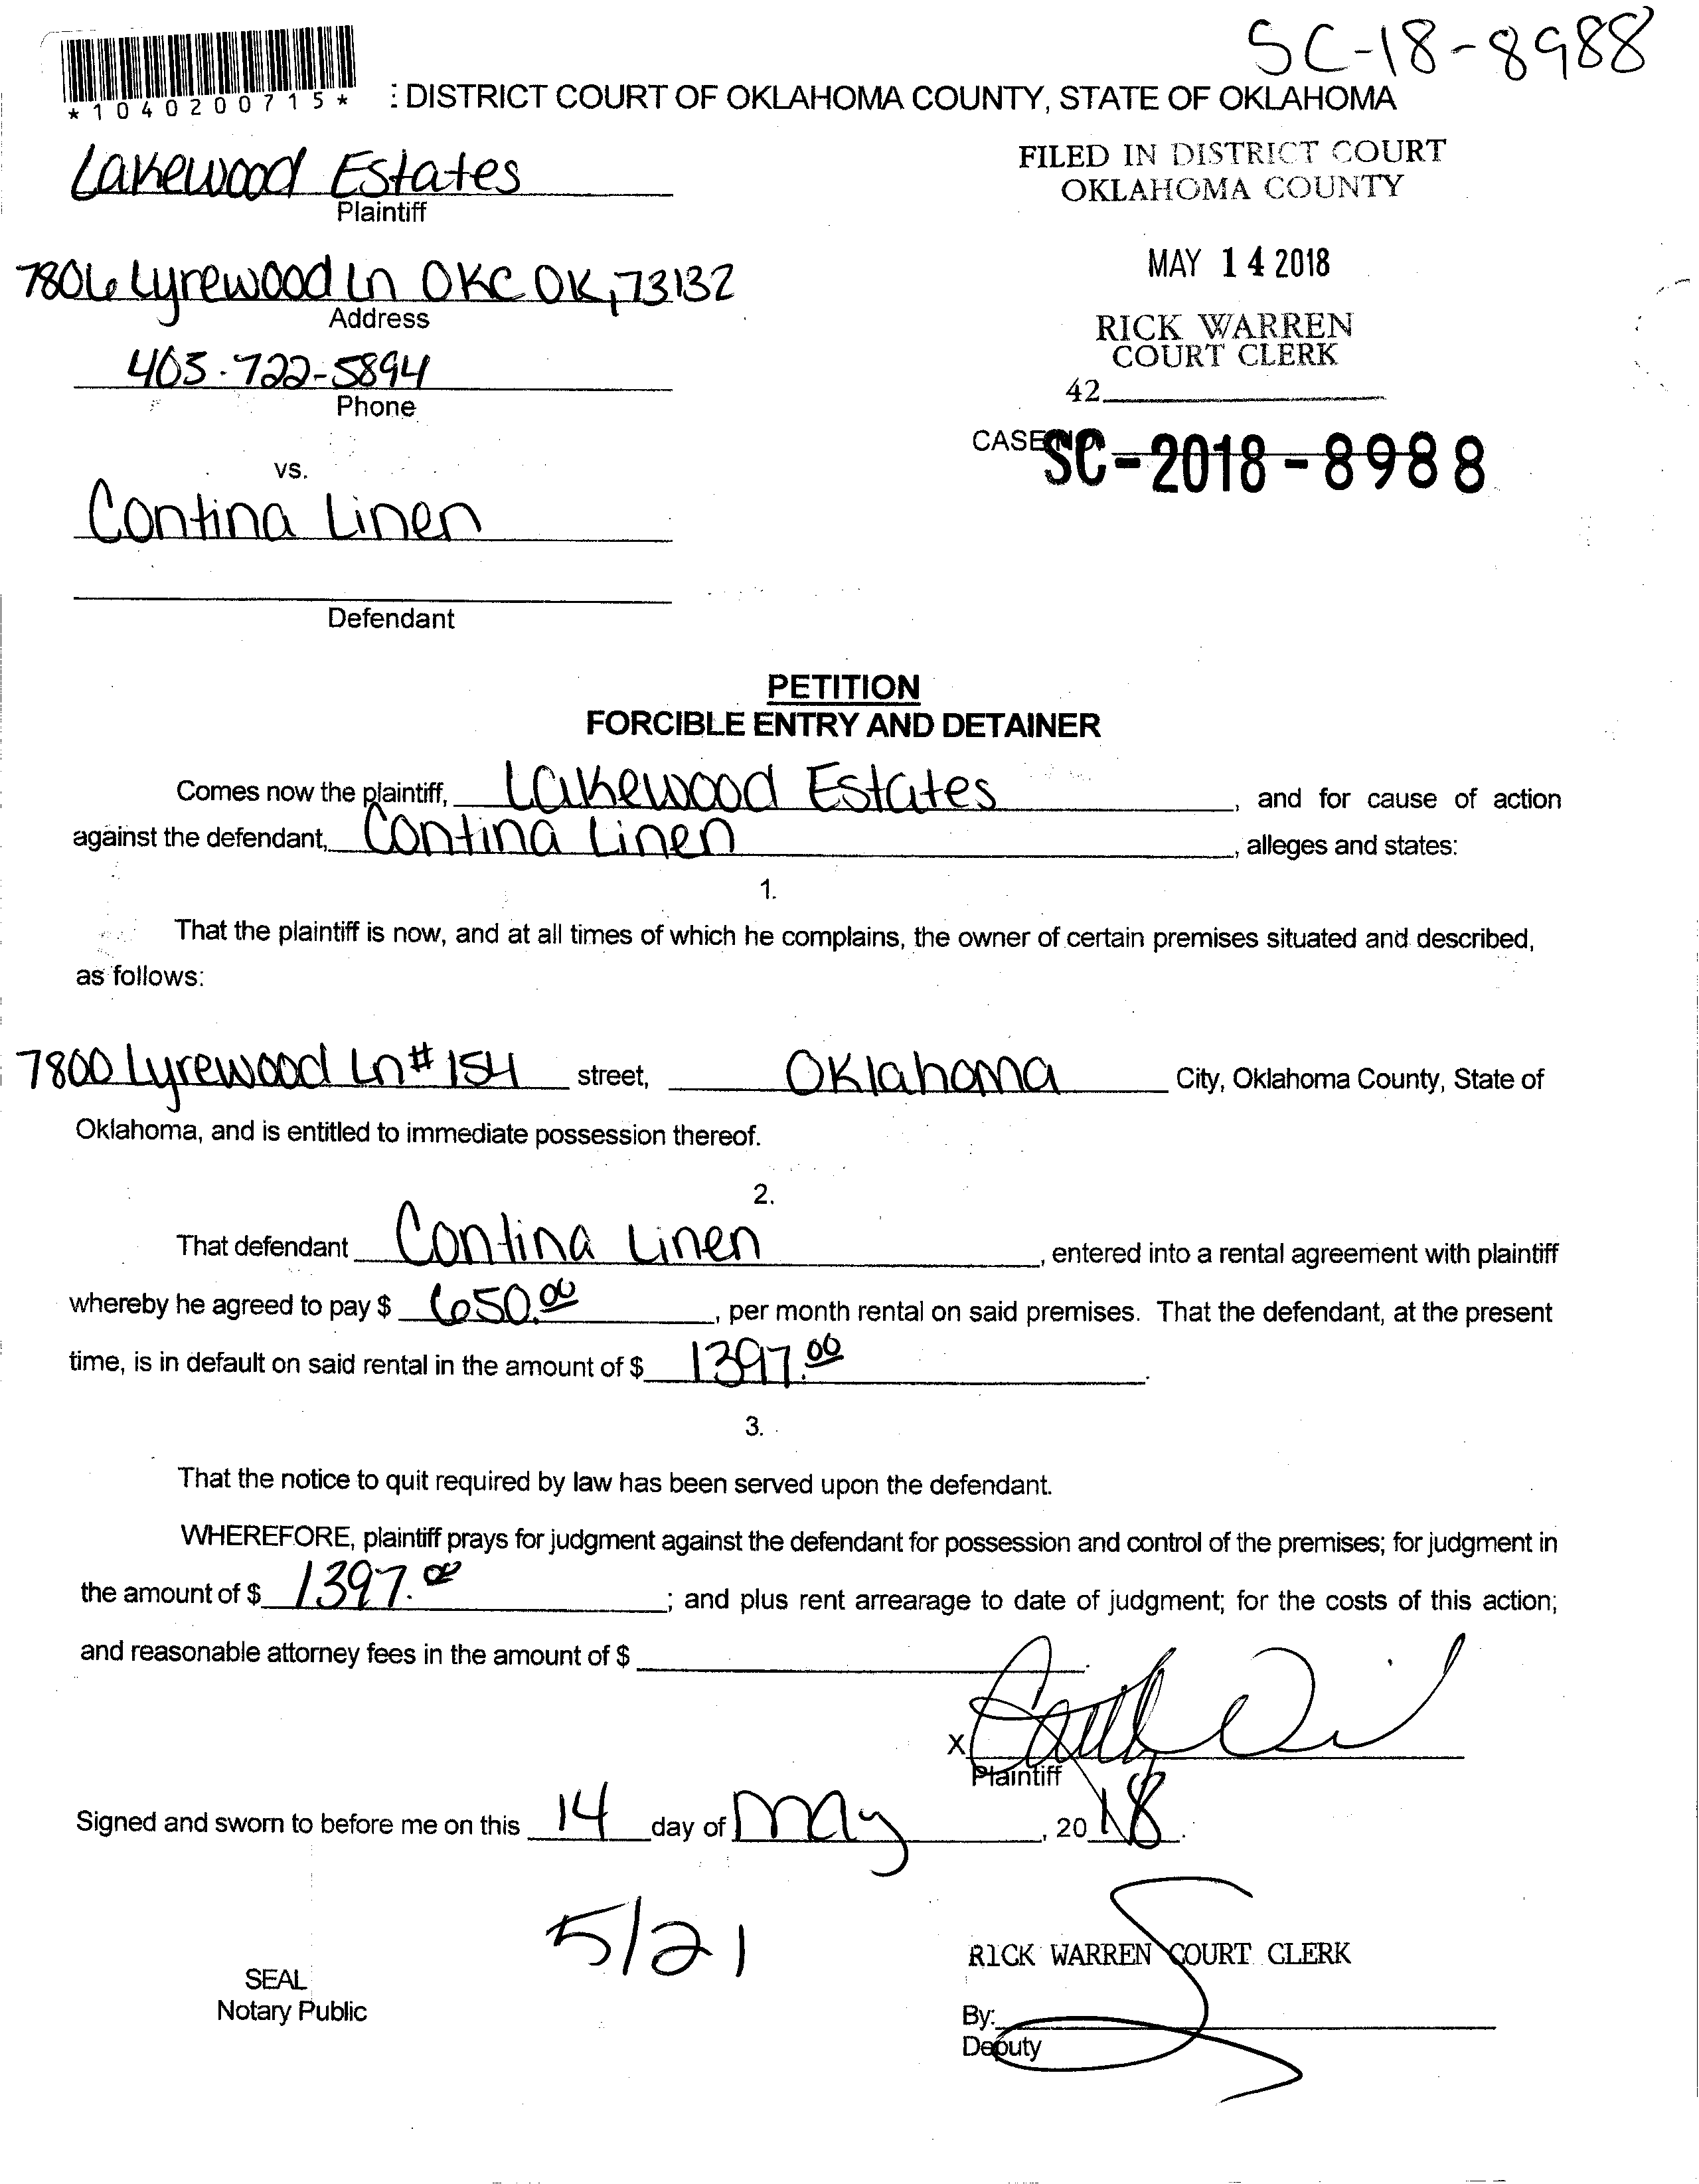 SC-18-8988
*1040200715*
: DISTRICT COURT OF OKLAHOMA COUNTY, STATE OF OKLAHOMA
Lakewood Estates
Plaintiff
FILED IN DISTRICT COURT
OKLAHOMA COUNTY
7806 Lyrewood Ln OKC OK, 73132
Address
MAY 14 2018
405-722-5894
Phone
RICK WARREN
COURT CLERK
42
vs.
CASE NO.
SC-2018-8988
Contina Linen
Defendant
PETITION
FORCIBLE ENTRY AND DETAINER
Comes now the plaintiff, Lakewood Estates, and for cause of action
against the defendant, Contina Linen, alleges and states:
1.
That the plaintiff is now, and at all times of which he complains, the owner of certain premises situated and described,
as follows:
7800 Lyrewood Ln # 154 street, Oklahoma City, Oklahoma County, State of
Oklahoma, and is entitled to immediate possession thereof.
2.
That defendant Contina Linen, entered into a rental agreement with plaintiff
whereby he agreed to pay $ 650.00, per month rental on said premises. That the defendant, at the present
time, is in default on said rental in the amount of $ 1397.00.
3.
That the notice to quit required by law has been served upon the defendant.
WHEREFORE, plaintiff prays for judgment against the defendant for possession and control of the premises; for judgment in
the amount of $ 1397.00; and plus rent arrearage to date of judgment; for the costs of this action;
and reasonable attorney fees in the amount of $ .
X
Plaintiff
Signed and sworn to before me on this 14 day of May, 2018.
5/21
RICK WARREN COURT CLERK
SEAL
Notary Public
By:
Deputy